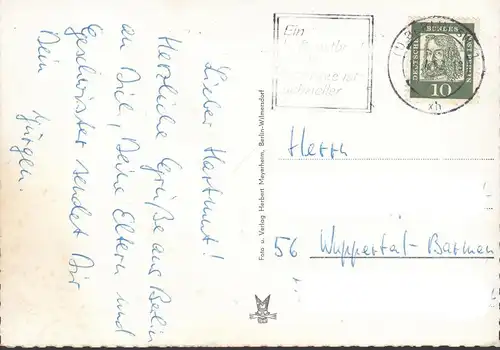 Lieber Hartmut!
Herzliche Grüße aus Berlin
an Dich, Deine Eltern und
Geschwister sendet Dir
Dein Jürgen.
Foto u. Verlag Herbert Meyerheim, Berlin-Wilmersdorf
Ein
ist
schneller
xh
DEUTSCHE BUNDESPOST
10
Herrn
56 Wuppertal-Barmen